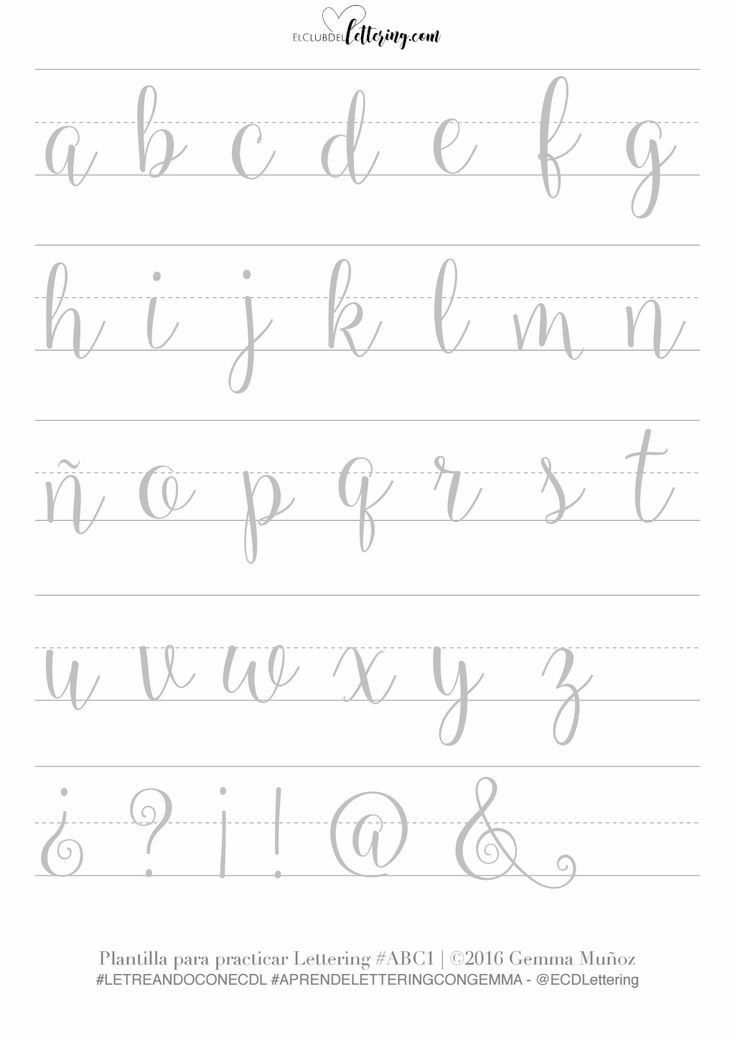 ELCLUBDELlettering.com
a b c d e f g
h i j k l m n
ñ o p q r s t
u v w x y z
¿ ? ¡ ! @ &
Plantilla para practicar Lettering #ABC1 | ©2016 Gemma Muñoz
#LETREANDOCONECDL #APRENDELETTERINGCONGEMMA - @ECDLettering